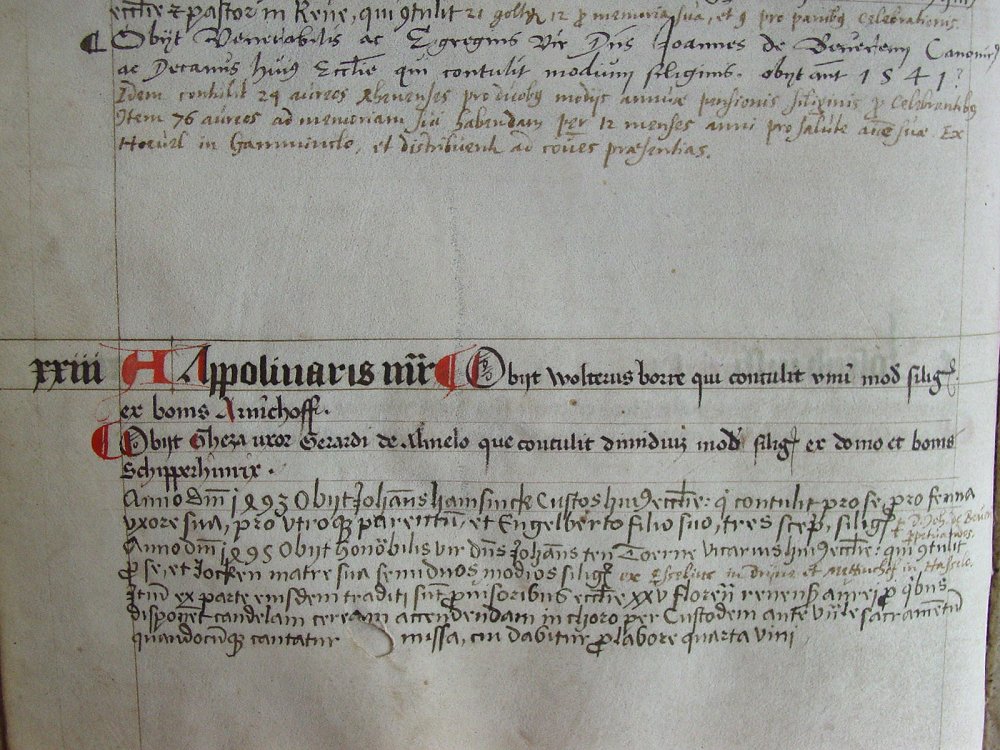 eccl'ie et pastor in Rene, qui 9tulit 21 golt 12 p memoria sua, et 9 pro panibq celebrationis.
Obijt Venerabilis ac Egregius Vir Dns Joannes de Beveren Canonic9
ac Decanus huiq Eccl'ie qui contulit modium siliginis. obijt ant 1541
Idem contulit 24 aureos Rhenenses pro duobq modijs annuae pensionis siliginis p Celebrantibq
Item 76 aureos ad memoriam sui habendam per 12 menses anni pro salute aiae suae. Ex
in et distribuent ad coes praesentias.
xxiii A Appolinaris mr Obijt wolterus borre qui contulit vnu mod silig
ex bonis Arnichoff.
Obijt Gheza uxor Gerardi de Almelo que contulit dimidiuz mod silig ex domo et bonis
Schipperhinrix.
Anno dni 1493 Obijt Johans hamsinck Custos huiq eccl'ie: q contulit pro se, pro fenna
vxore sua, pro vtroqz parentum, et Engelberto filio suo, tres scep, silig
Anno dni 1495 Obijt honobilis vir dns Johans ten Toerne vicarius huiq eccl'ie: qui 9tulit
p se, et Jocken matre sua semiduos modios silig ex in et in Hasselo.
Itm ex parte eiusdem traditi sut puisoribus eccl'ie xxv floreij renens aurei p qbus
disponet candelam ceream accendendam in choro per Custodem ante vnle sacrametu
quandocunqz cantatur missa, cui dabitur p labore quarta vini